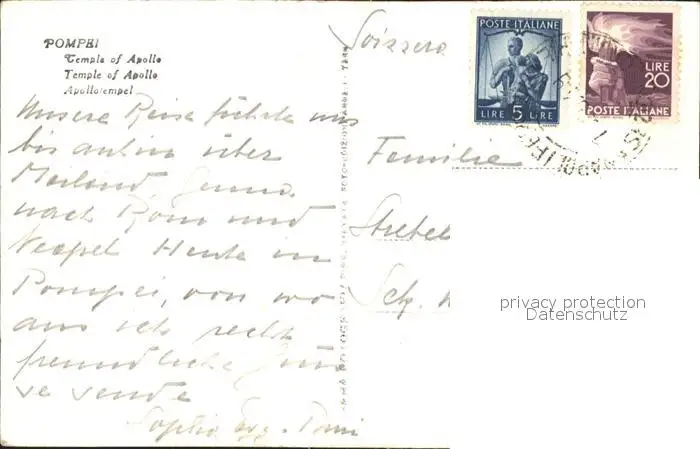 POMPEI
Temple of Apollo
Temple of Apollo
Apollotempel
Unsere Reise führte uns
bis anhin über
Mailand, Genua
nach Rom und
Neapel Heute in
Pompei, von wo
aus ich recht
freundliche Grüs
se sende
Sophie
Soizzera
POSTE ITALIANE
LIRE 5 LIRE
LIRE
20
POSTE ITALIANE
Familie
Strebel
Sek.
privacy protection
Datenschutz